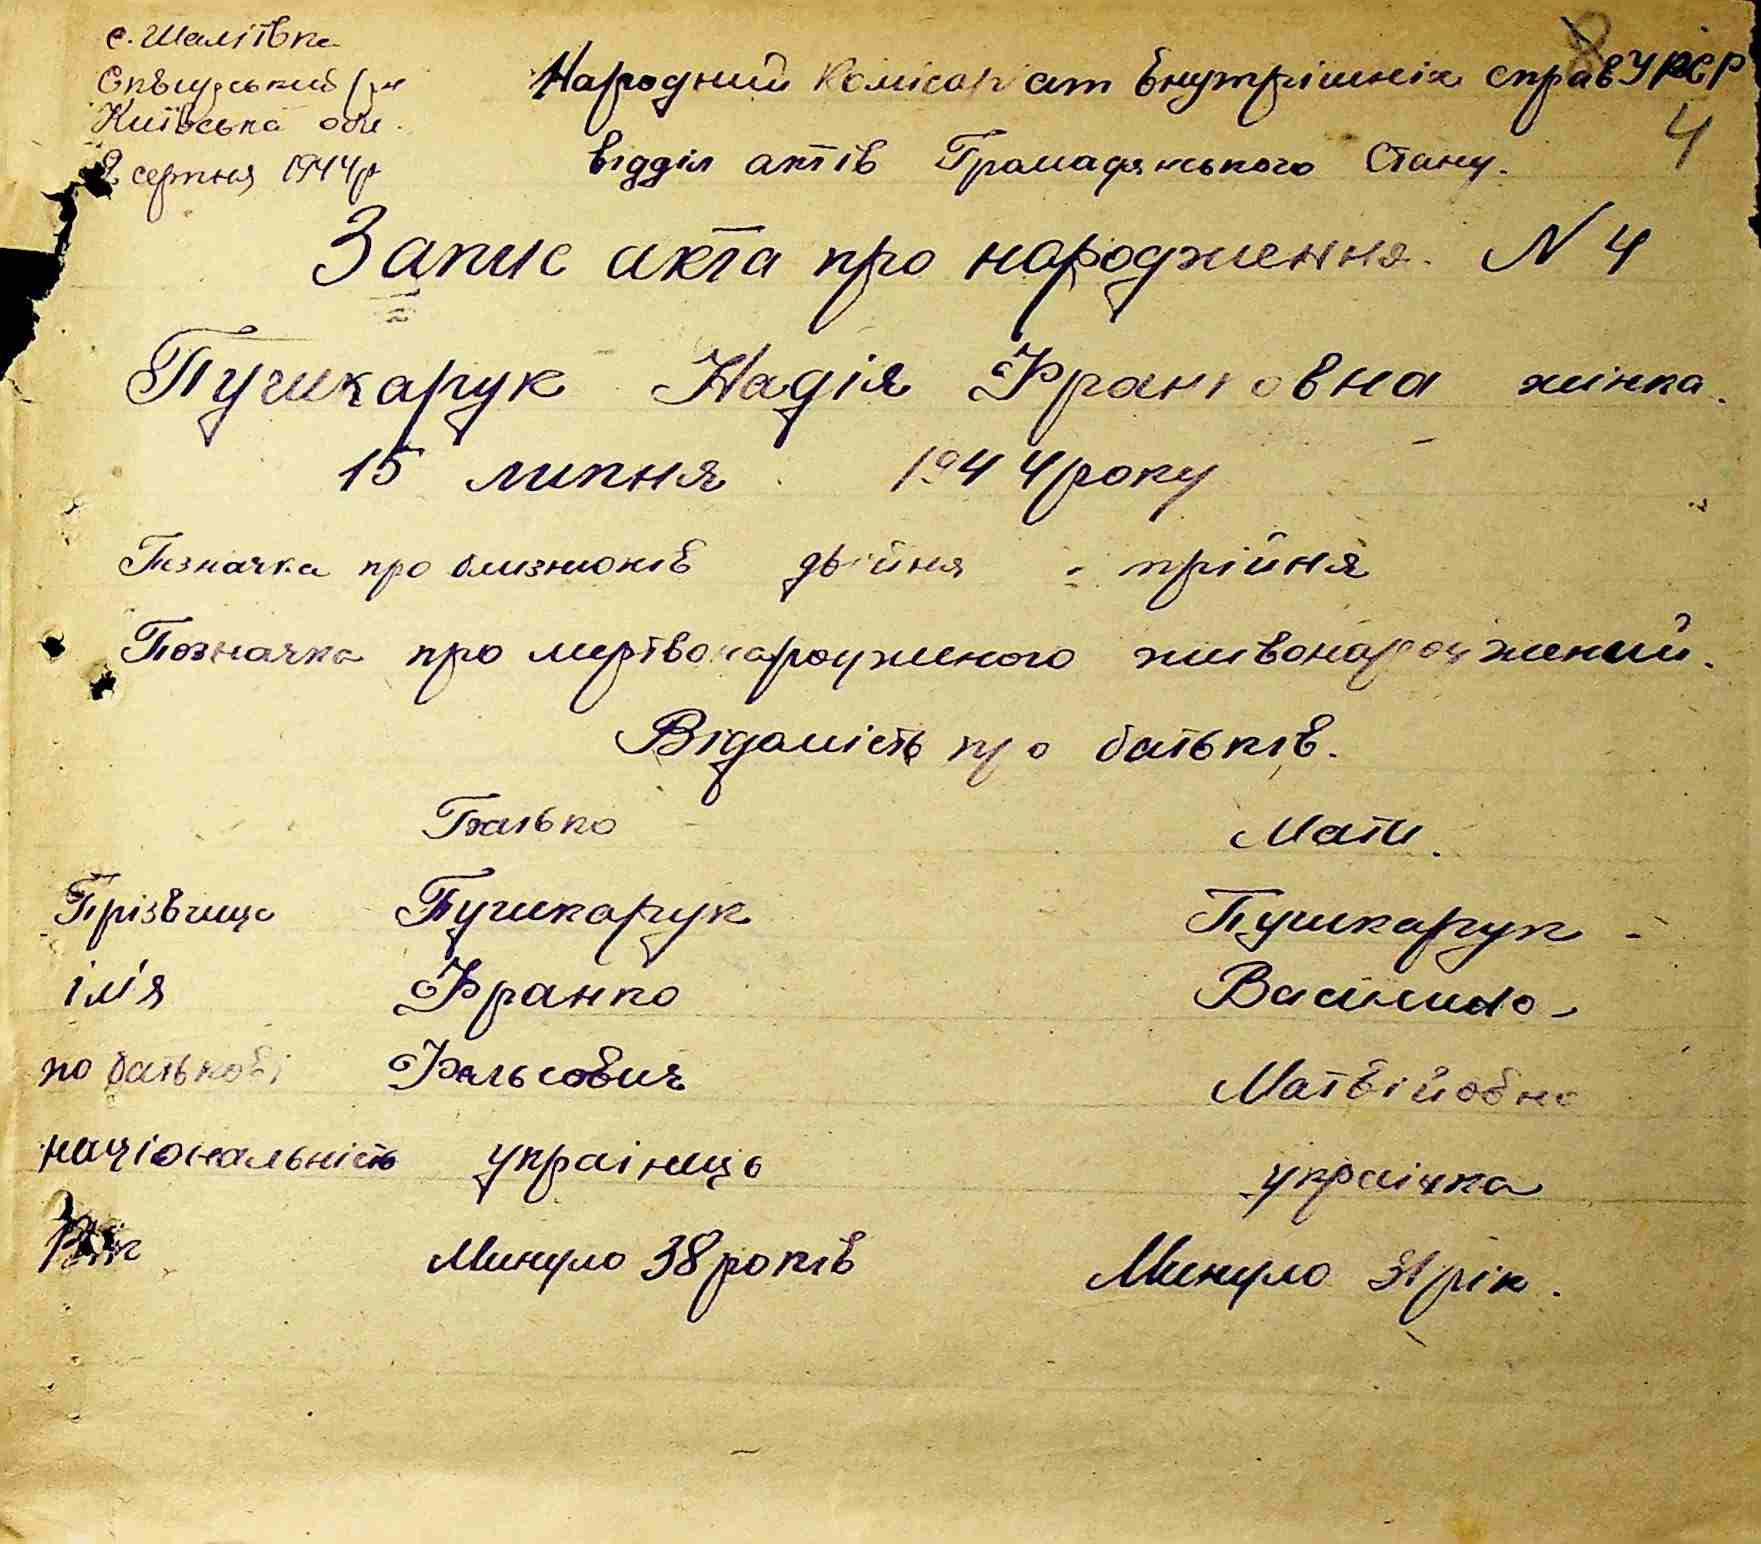 с. Шаліївка
Сквирський р/н
Київська обл.
2 серпня 1944р
Народний Комісаріат внутрішніх справ УРСР
4
відділ актів Громадянського Стану.
Запис акта про народження. N 4
Пушкарук Надія Франковна жінка.
15 липня 1944 року
Позначка про близнюків двійня трійня
Позначка про мертвонародженого живонароджений.
Відомість про батьків.
Батько Мати.
Прізвище Пушкарук Пушкарук
ім'я Франко
по батькові Фальсович Матвійовна
національність українець українка
Вік Минуло 38 років Минуло 31 рік.